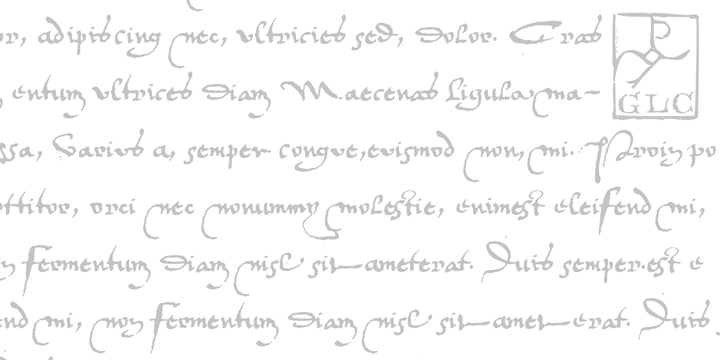 or, adipiscing nec, ultricies sed, dolor. Cras
entum ultrices diam Maecenas ligula ma-
ssa, Varius a, semper congue, euismod non, mi. Proin po
rttitor, orci nec nonummy molestie, enimest eleifend mi,
n fermentum diam nisl sit ameterat. Duis semper.est e
end mi, non fermentum diam nisl sit amet erat. Duis
GLC